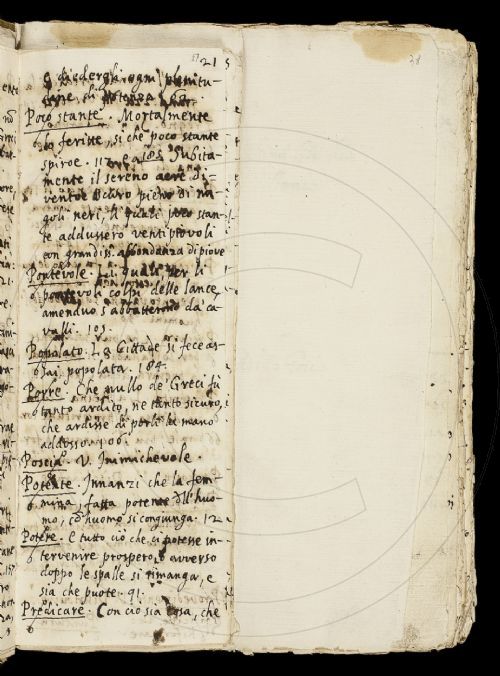 215
28
e diedergli ogni plenitu-
dine di potenza 62.
Poco stante. Mortalmente
lo feritte, si che poco stante
spiroe. 117. e 185. Subita-
mente il sereno aere di-
ventoe oscuro pieno di nu-
goli neri, li quali poco stan-
te addussero venti piovoli
con grandiss. abbondanza di piove
Pontevole. Li quali per li
pontevoli colpi delle lance,
amenduo s'abbatterono da ca-
valli. 105.
Popolato. La Cittade si fece as-
sai popolata. 184.
Porre. Che nullo de Greci fù
tanto ardito, ne tanto sicuro,
che ardisse di porli la mano
addosso. 106.
Poscia. V. Inimichevole.
Potente. Innanzi che la fem-
mina, fatta potente dell'huo-
mo, cò huomo si congiunga. 12
Potere. e tutto ciò che si potesse in-
tervenire prospero, ò avverso
doppo le spalle si rimanga, e
sia che puote. 91.
Predicare. Con ciò sia cosa, che